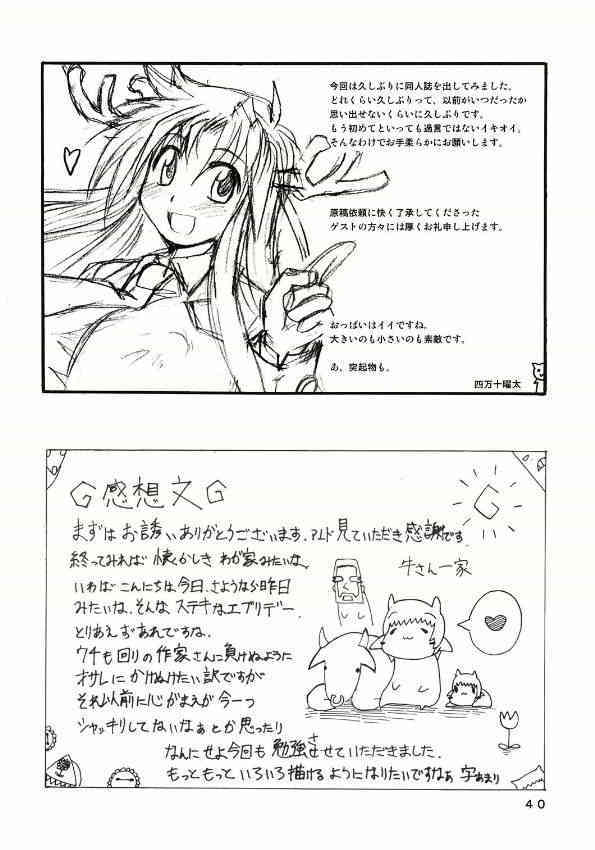 今回は久しぶりに同人誌を出してみました。
どれくらい久しぶりって、以前がいつだったか
思い出せないくらいに久しぶりです。
もう初めてといっても過言ではないイキオイ。
そんなわけでお手柔らかにお願いします。
原稿依頼に快く了承してくださった
ゲストの方々には厚くお礼申し上げます。
おっぱいはイイですね。
大きいのも小さいのも素敵です。
あ、突起物も。
四万十曜太
G感想文G
まずはお誘いありがとうございます.アンド見ていただき感謝です
終ってみれば懐かしき わが家みたいな.
いわば こんにちは今日.さようなら昨日
みたいな.そんな ステキなエブリデー.
とりあえずあれですね.
ウチも回りの作家さんに負けぬように
オサレにかけぬけたい訳ですが
それ以前に心がまえが今一つ
シャッキリしてないなぁとか思ったり
なんにせよ今回も勉強させていただきました.
もっともっといろいろ描けるようになりたいですなぁ 字あまり
G
牛さん一家
40